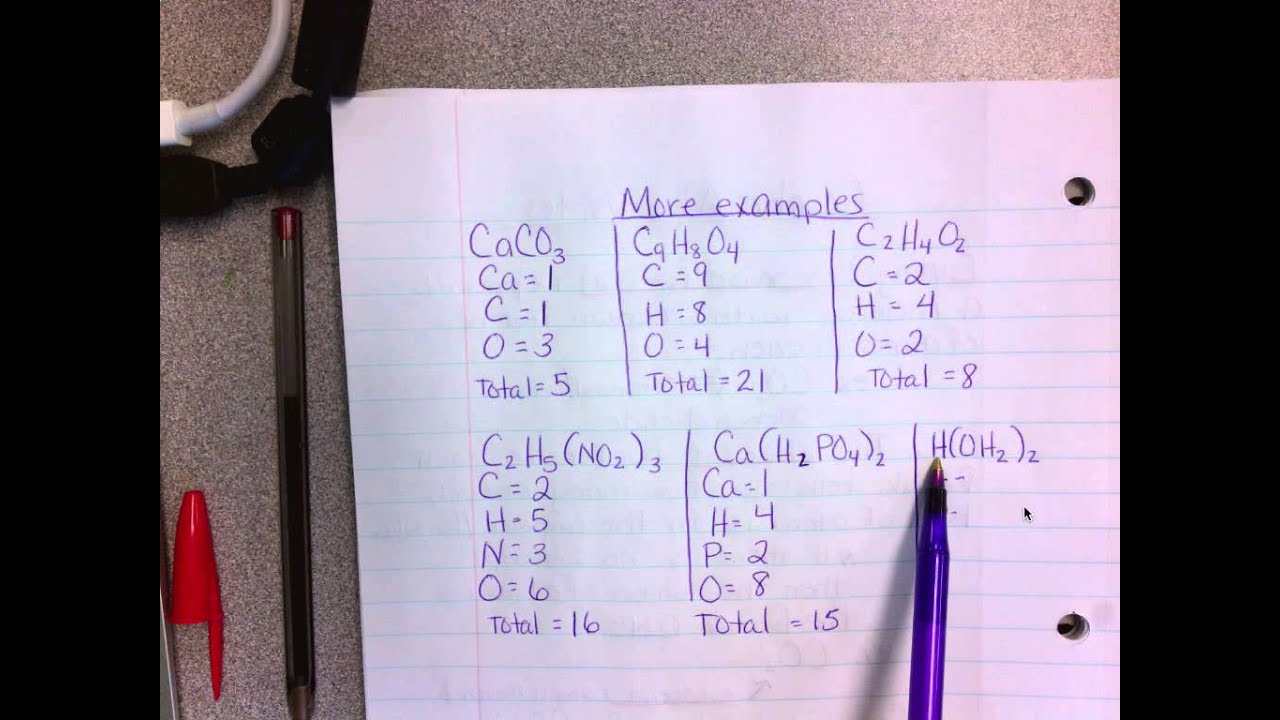 More examples
CaCO₃
Ca = 1
C = 1
O = 3
Total = 5
C₉H₈O₄
C = 9
H = 8
O = 4
Total = 21
C₂H₄O₂
C = 2
H = 4
O = 2
Total = 8
C₂H₅(NO₂)₃
C = 2
H = 5
N = 3
O = 6
Total = 16
Ca(H₂PO₄)₂
Ca = 1
H = 4
P = 2
O = 8
Total = 15
H(OH₂)₂